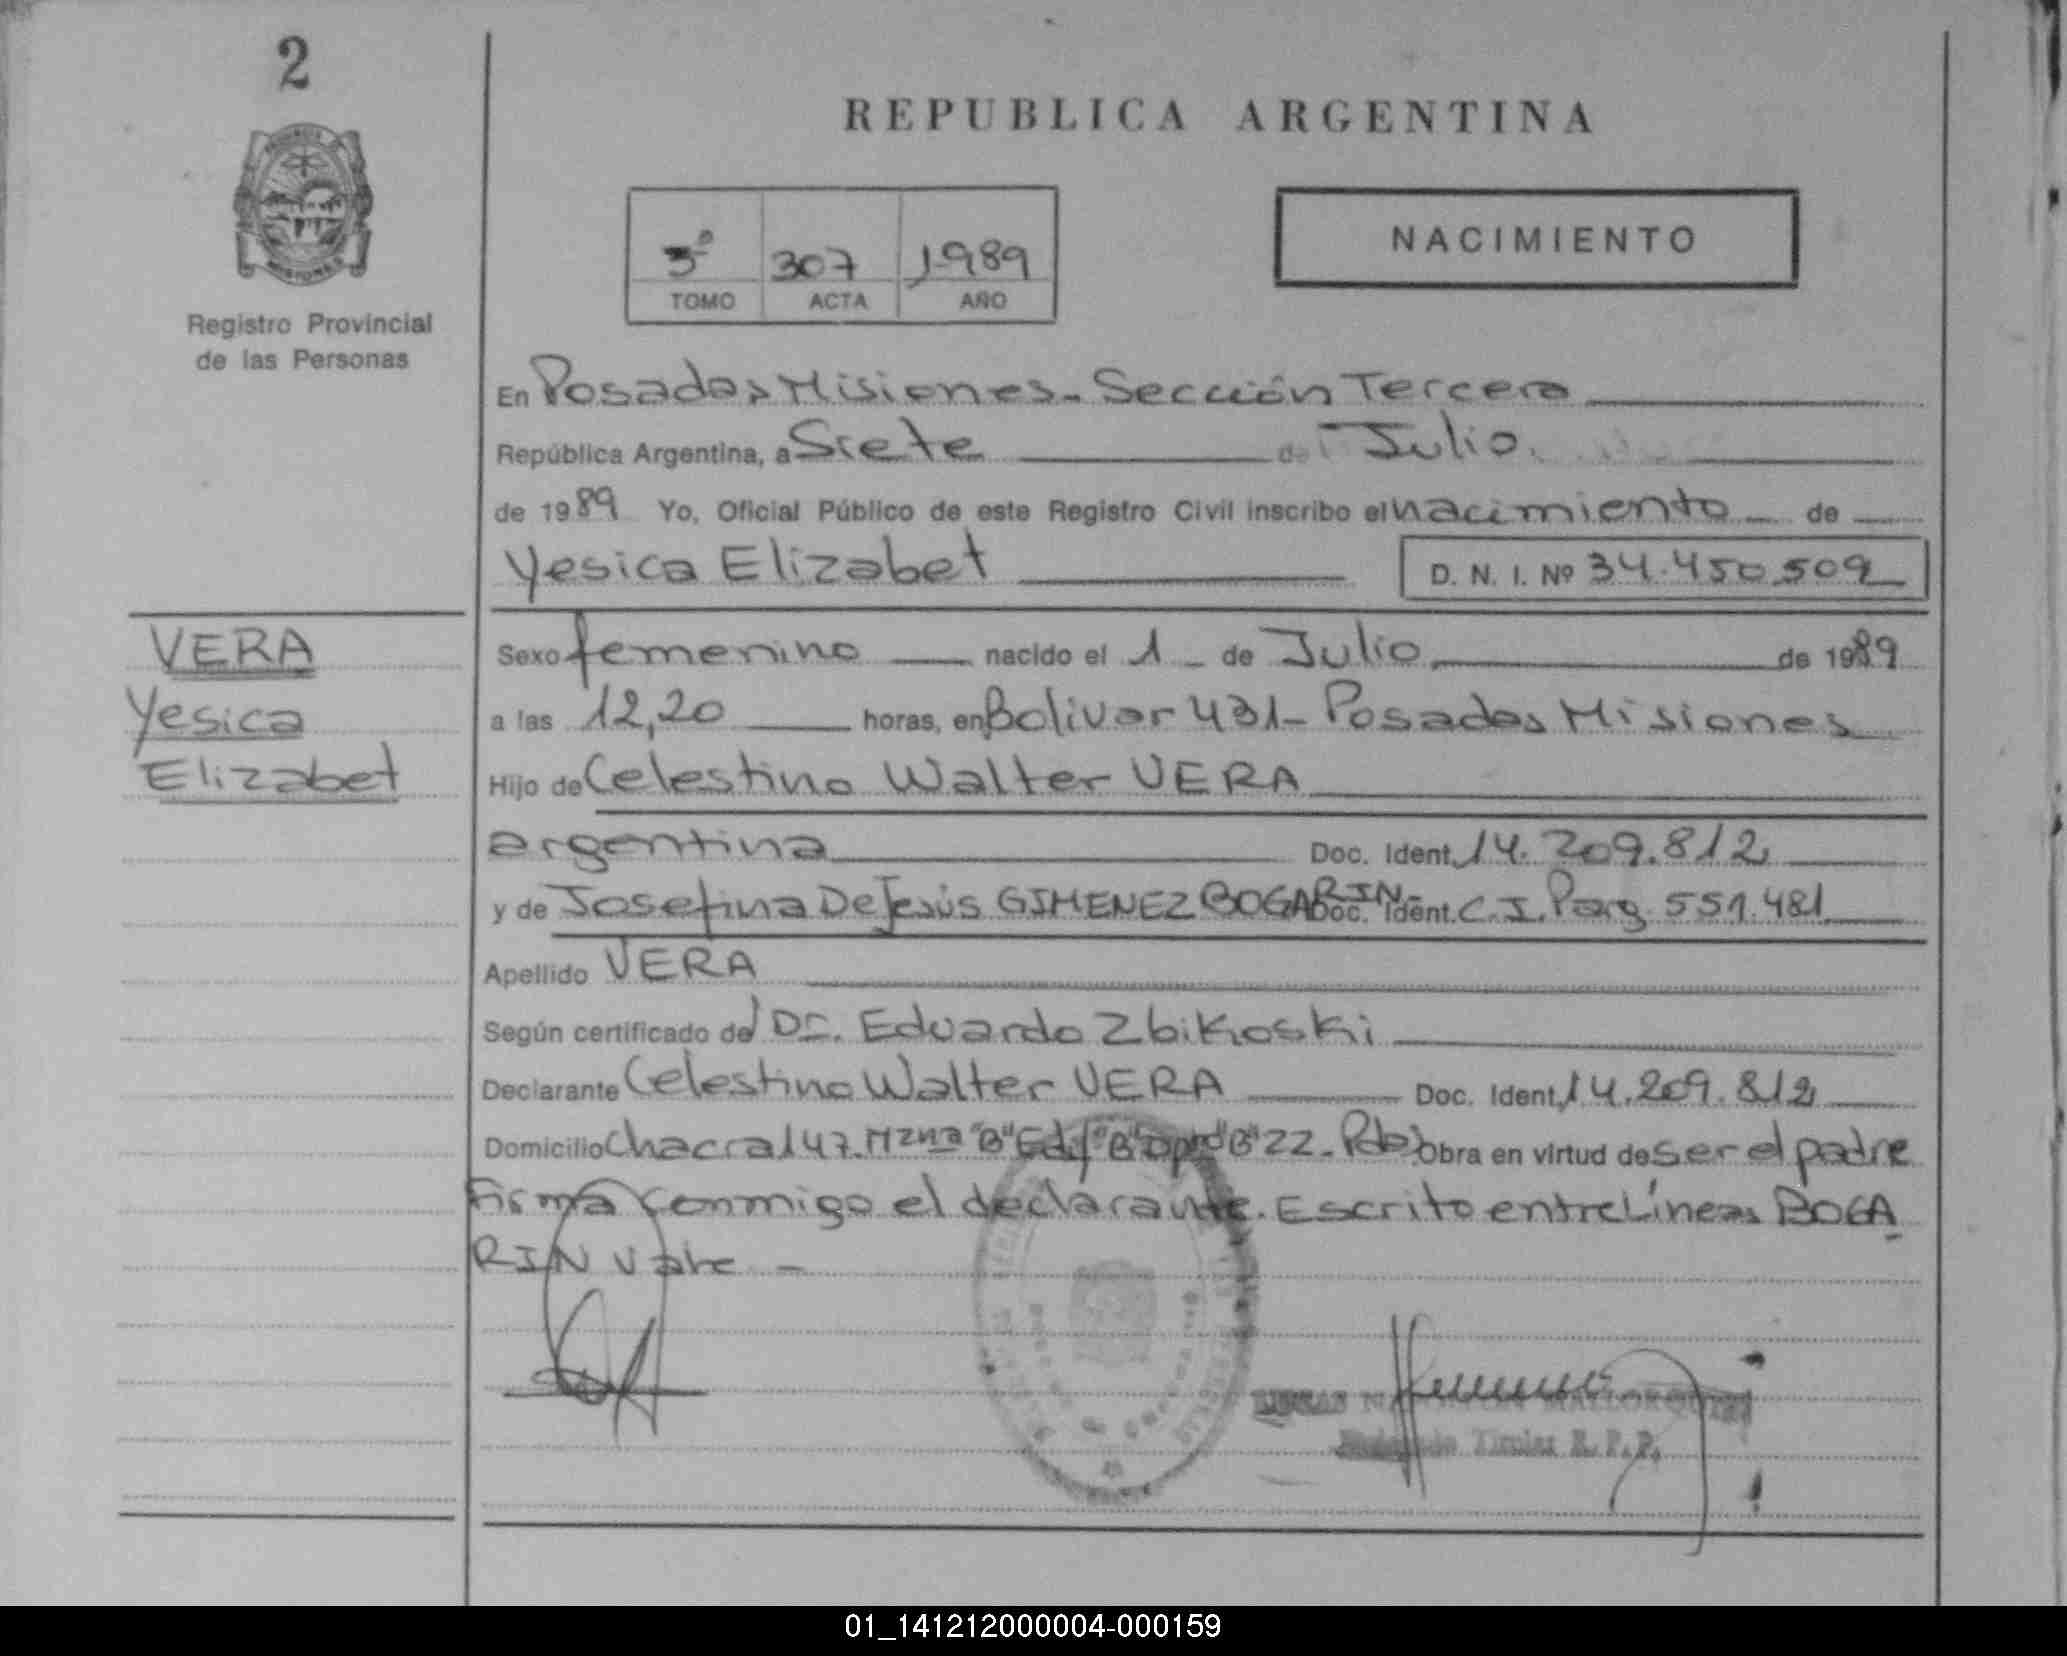 2
REPUBLICA ARGENTINA
MISIONES
Registro Provincial
de las Personas
3º 307 1989
TOMO ACTA AÑO
NACIMIENTO
En Posadas Misiones - Sección Tercera
República Argentina, a Siete de Julio
de 1989 Yo, Oficial Público de este Registro Civil inscribo el nacimiento de
Yesica Elizabet
D. N. I. Nº 34.450.509
VERA
Yesica
Elizabet
Sexo femenino nacido el 1 de Julio de 1989
a las 12,20 horas, en Bolivar 431 - Posadas Misiones
Hijo de Celestino Walter VERA
argentina Doc. Ident. 14.209.812
y de Josefina De Jesús GIMENEZ BOGARIN- Doc. Ident. C.I. Parg. 551.481
Apellido VERA
Según certificado del Dr. Eduardo Zbikoski
Declarante Celestino Walter VERA Doc. Ident. 14.209.812
Domicilio Chacra 147. Mzna "B" Edif "B" Dpto "B" 22 - Pdas Obra en virtud de ser el padre
Firma conmigo el declarante. Escrito entre Líneas BOGA
RIN Vale -
Titular R. P. P.
01_141212000004-000159